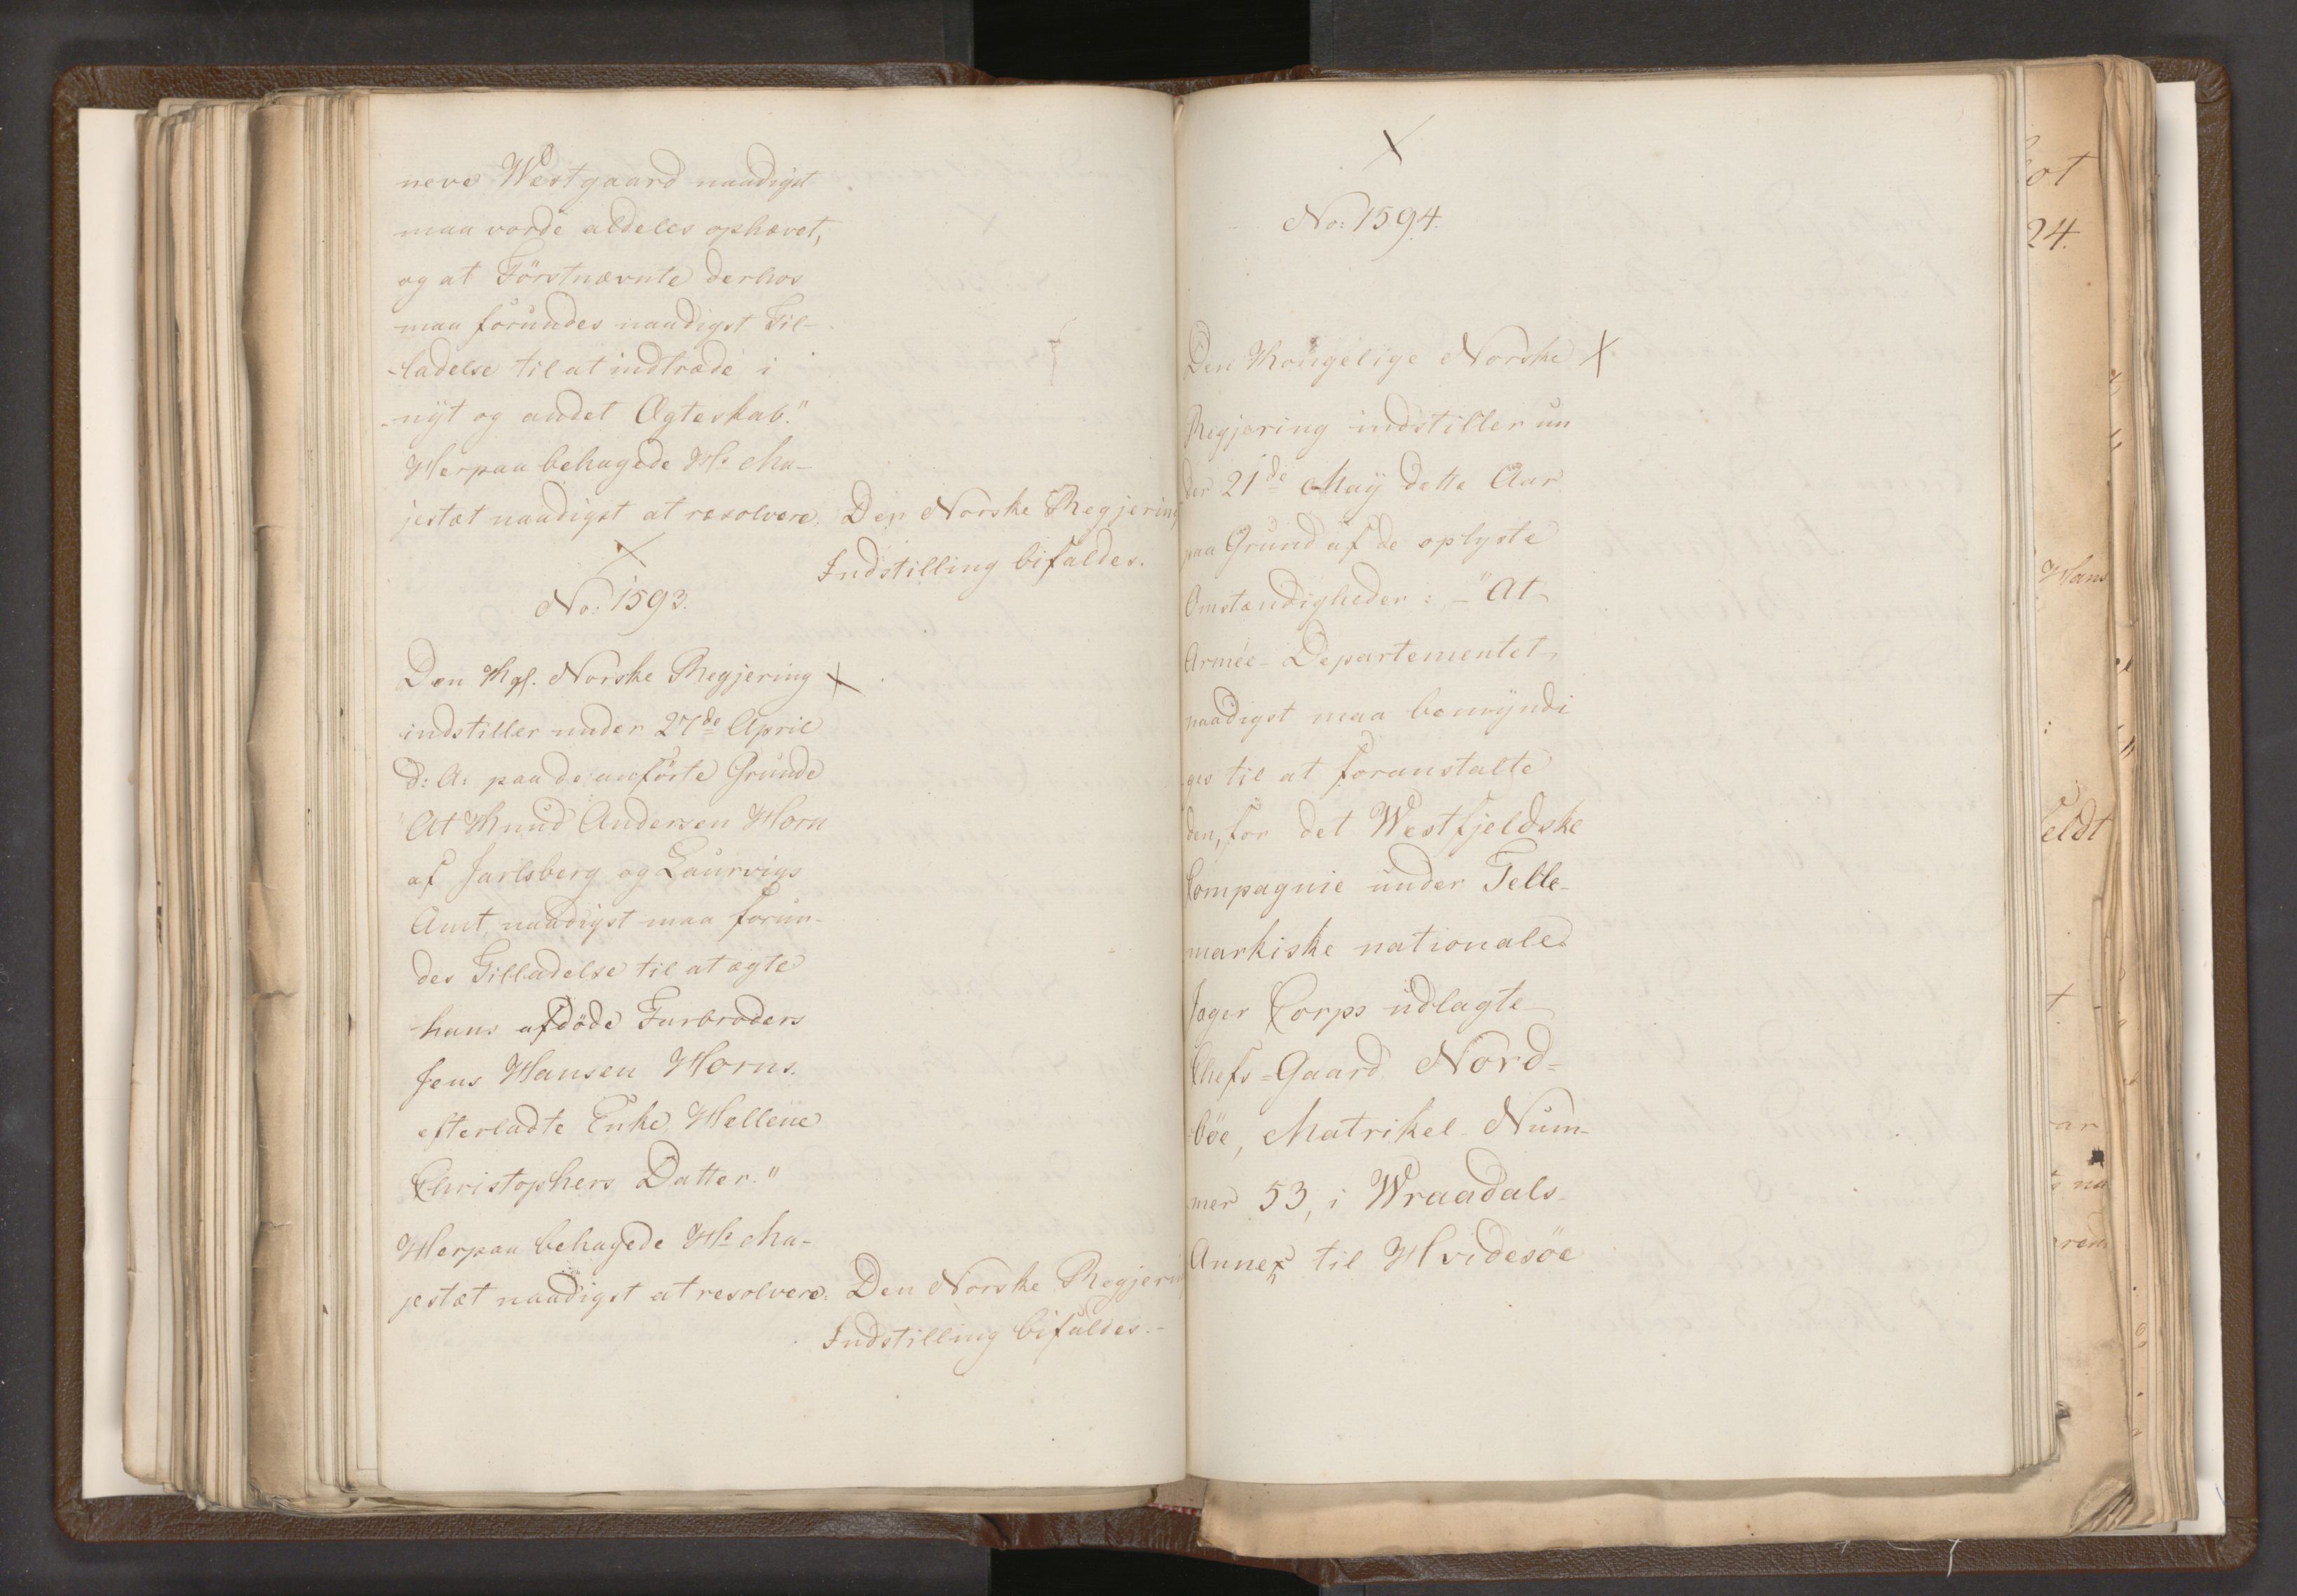 neve Westgaard naadigst
maa vorde aldeles ophævet,
og at Förstnævnte derhos
maa forundes naadigst Til-
ladelse til at indtræde i
nÿt og andet Ægteskab."
Herpaa behagede Hs Ma-
jestæt naadigst at resolvere: Den Norske Regjering
Indstilling bifaldes.
No: 1593.
Den Kgl. Norske Regjering X
indstiller under 27de April
d: A: paa de anförte Grunde
"At Knud Andersen Horn
af Jarlsberg og Laurvigs
Amt, naadigst maa forun-
des Tilladelse til at ægte
hans afdöde Farbroders
Jens Hansen Horns
efterladte Enke Hellene
Christophers Datter."
Herpaa behagede Hs Ma-
jestæt naadigst at resolvere: Den Norske Regjerin
Indstilling bifaldes.-
X
No: 1594.
Den Kongelige Norske X
Regjering indstiller un
der 21de Maÿ dette Aar
paa Grund af de oplyste
Omstændigheder: - "At
Armée-Departementet
naadigst maa bemÿndi
ges til at foranstalte
den, for det Westfjeldske
Compagnie under Telle-
markiske nationale
Jæger Corps udlagte
Chefs-Gaard Nord-
böe, Matrikel-Num-
mer 53, i Wraadals
Annex til Hvidesöe
ot
24.
Hans
feldt